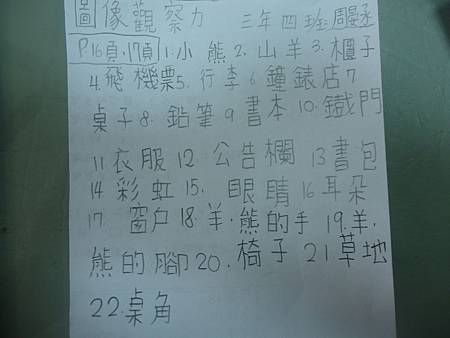 圖像觀察力 三年四班周晏丞
P.16頁.17頁1.小熊2.山羊3.櫃子
4.飛機票5.行李6.鐘錶店7
桌子8.鉛筆9書本10.鐵門
11衣服12.公告欄13書包
14.彩虹15.眼睛16耳朵
17.窗戶18.羊.熊的手19.羊.
熊的腳20.椅子21草地
22.桌角